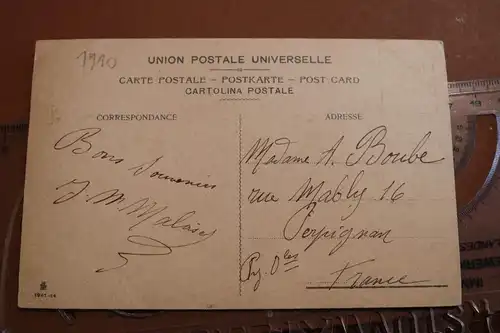 1910
UNION POSTALE UNIVERSELLE
CARTE POSTALE – POSTKARTE – POST CARD
CARTOLINA POSTALE
CORRESPONDANCE
Bons Souvenirs
ADRESSE
Madame A. Boube
rue Mably 16
Perpignan
Py. Oles
France